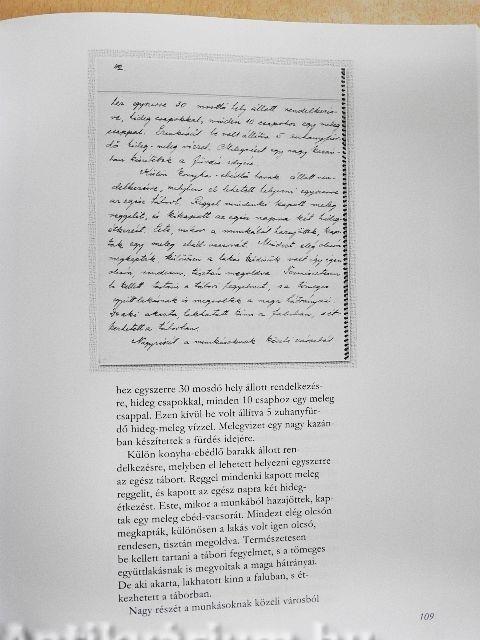 42
hez egyszerre 30 mosdó hely állott rendelkezés-
re, hideg csapokkal, minden 10 csaphoz egy meleg
csappal. Ezenkivül be volt állitva 5 zuhanyfür-
dő hideg-meleg vízzel. Melegvizet egy nagy kazán-
ban készitettek a fürdés idejére.
Külön konyha-ebédlő barak állott ren-
delkezésre, melyben el lehetett helyezni egyszerre
az egész tábort. Reggel mindenki kapott meleg
reggelit, és kikapott az egész napra két hideg-
étkezést. Este, mikor a munkából hazajöttek, kap-
tak egy meleg ebéd-vacsorát. Mindezt elég olcsón
megkapták, különösen a lakás kérdésük volt igen
olcsón, rendesen, tisztán megoldva. Természetesen
be kellett tartani a tábori fegyelmet, sa tömeges
együttlakásnak is megvoltak a maga hátrányai.
De aki akarta, lakhatott kinn a faluban, s ét-
kezhetett a táborban.
Nagyrészét a munkásoknak közeli városból
hez egyszerre 30 mosdó hely állott rendelkezés-
re, hideg csapokkal, minden 10 csaphoz egy meleg
csappal. Ezen kívül be volt állítva 5 zuhanyfür-
dő hideg-meleg vízzel. Melegvizet egy nagy kazán-
ban készítettek a fürdés idejére.
Külön konyha-ebédlő barakk állott ren-
delkezésre, melyben el lehetett helyezni egyszerre
az egész tábort. Reggel mindenki kapott meleg
reggelit, és kapott az egész napra két hideg-
étkezést. Este, mikor a munkából hazajöttek, kap-
tak egy meleg ebéd-vacsorát. Mindezt elég olcsón
megkapták, különösen a lakás volt igen olcsó,
rendesen, tisztán megoldva. Természetesen
be kellett tartani a tábori fegyelmet, s a tömeges
együttlakásnak is megvoltak a maga hátrányai.
De aki akarta, lakhatott kinn a faluban, s ét-
kezhetett a táborban.
Nagy részét a munkásoknak közeli városból
109